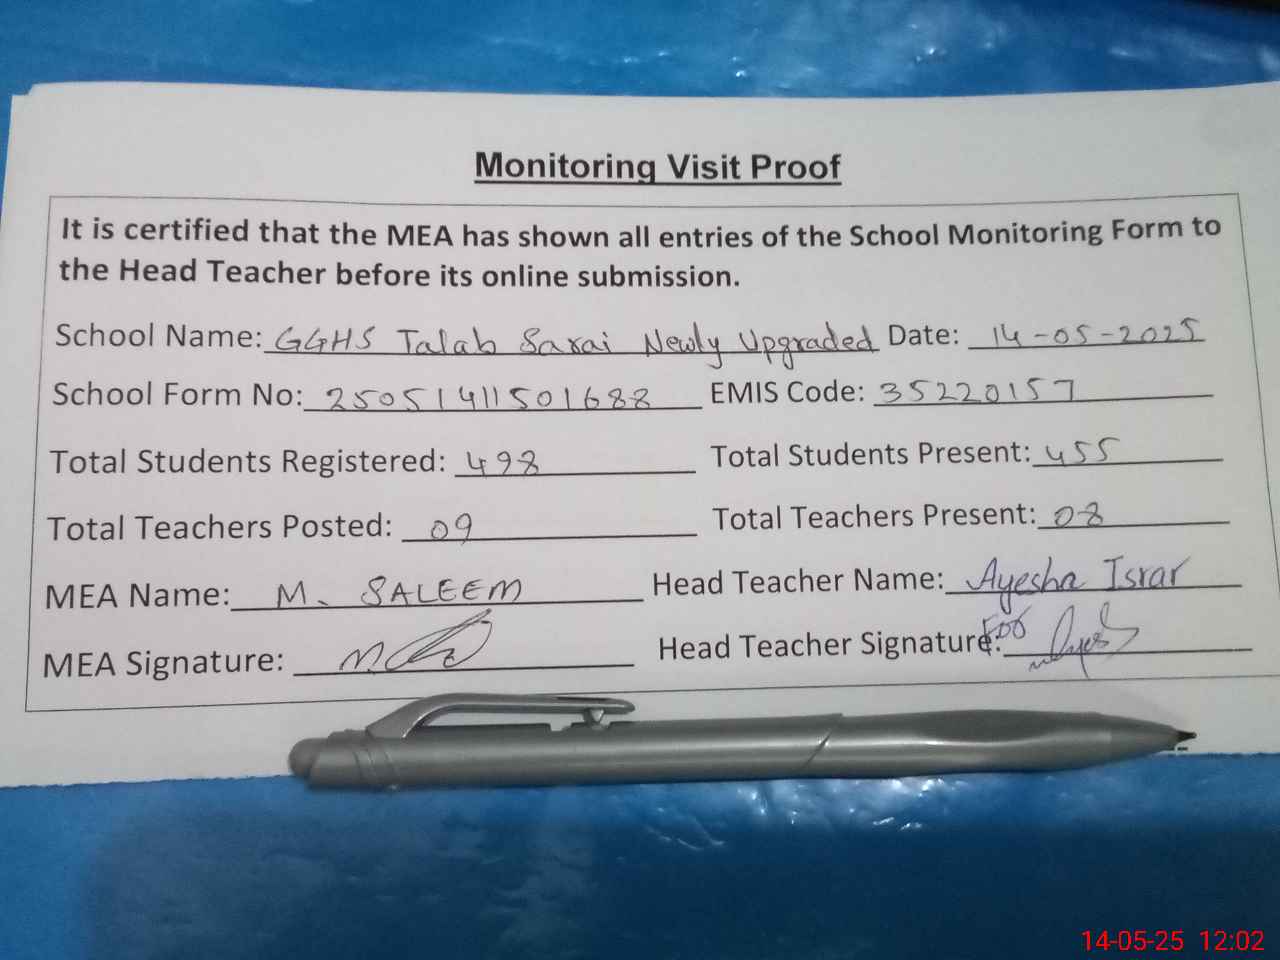 Monitoring Visit Proof
It is certified that the MEA has shown all entries of the School Monitoring Form to
the Head Teacher before its online submission.
School Name: GGHS Talab Sarai Newly Upgraded Date: 14-05-2025
School Form No: 25051411501688 EMIS Code: 35220157
Total Students Registered: 498 Total Students Present: 455
Total Teachers Posted: 09 Total Teachers Present: 08
MEA Name: M. SALEEM Head Teacher Name: Ayesha Israr
MEA Signature: Head Teacher Signature:
14-05-25 12:02